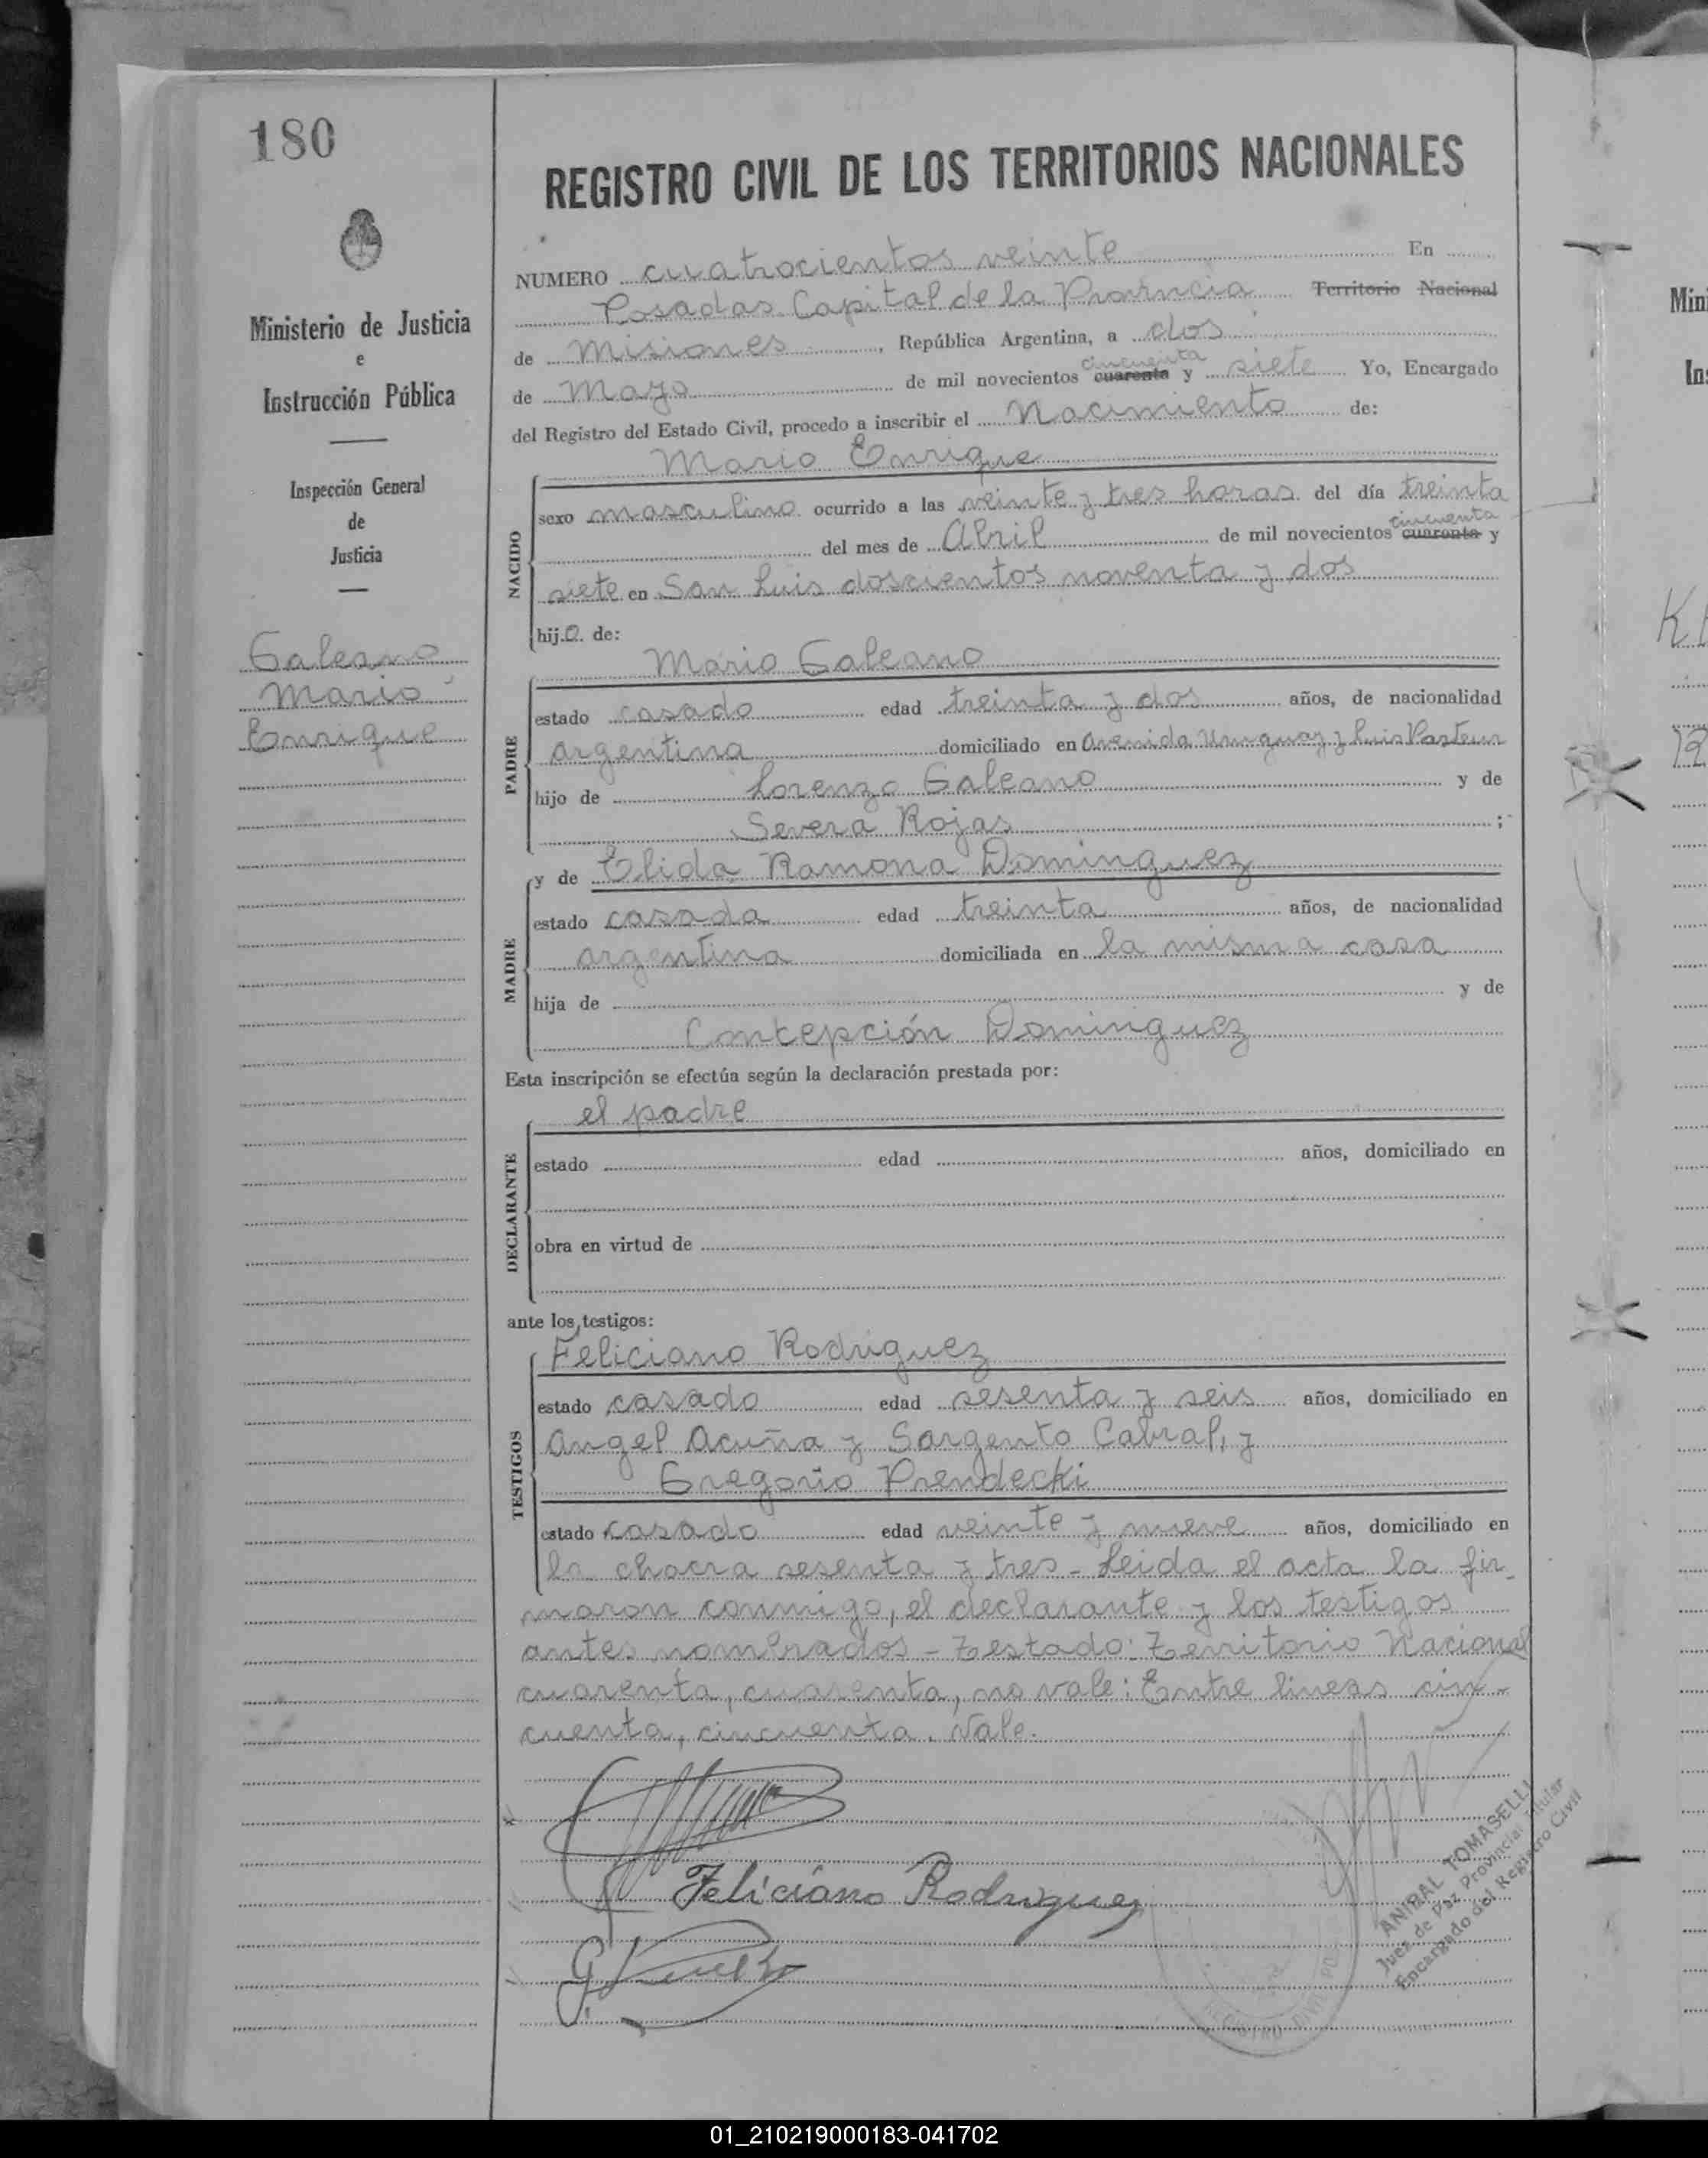 180
Ministerio de Justicia
e
Instrucción Pública
Inspección General
de
Justicia
Galeano
Mario
Enrique
REGISTRO CIVIL DE LOS TERRITORIOS NACIONALES
NUMERO cuatrocientos veinte En
Posadas Capital de la Provincia Territorio Nacional
de Misiones, República Argentina, a dos
cincuenta
de Mayo de mil novecientos cuarenta y siete Yo, Encargado
del Registro del Estado Civil, procedo a inscribir el Nacimiento de:
Mario Enrique
NACIDO
sexo masculino ocurrido a las veinte y tres horas del día treinta
cincuenta
del mes de Abril de mil novecientos cuarenta y
siete en San Luis doscientos noventa y dos
hijo de:
Mario Galeano
PADRE
estado casado edad treinta y dos años, de nacionalidad
argentina domiciliado en Avenida Uruguay y Luis Pasteur
hijo de Lorenzo Galeano y de
Severa Rojas ;
MADRE
y de Elida Ramona Dominguez
estado casada edad treinta años, de nacionalidad
argentina domiciliada en la misma casa
hija de y de
Concepción Dominguez
Esta inscripción se efectúa según la declaración prestada por:
el padre
DECLARANTE
estado edad años, domiciliado en
obra en virtud de
ante los testigos:
Feliciano Rodriguez
TESTIGOS
estado casado edad sesenta y seis años, domiciliado en
Angel Acuña y Sargento Cabral, y
Gregorio Prendecki
estado casado edad veinte y nueve años, domiciliado en
la chacra sesenta y tres - Leida el acta la fir-
maron conmigo, el declarante y los testigos
antes nombrados - Testado: Territorio Nacional
cuarenta, cuarenta, no vale: Entre lineas cin-
cuenta, cincuenta. Vale.
Feliciano Rodriguez
ANIBAL TOMASELLI
Juez de Paz Provincial Titular
Encargado del Registro Civil
01_210219000183-041702